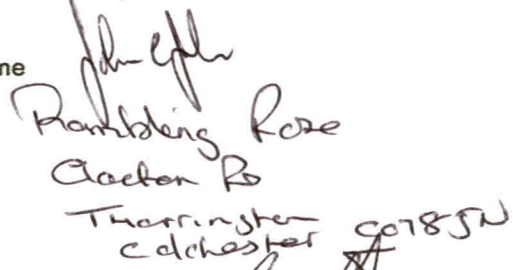 me
Rambling Rose
Clacton Rd
Thorrington
Colchester CO78JN